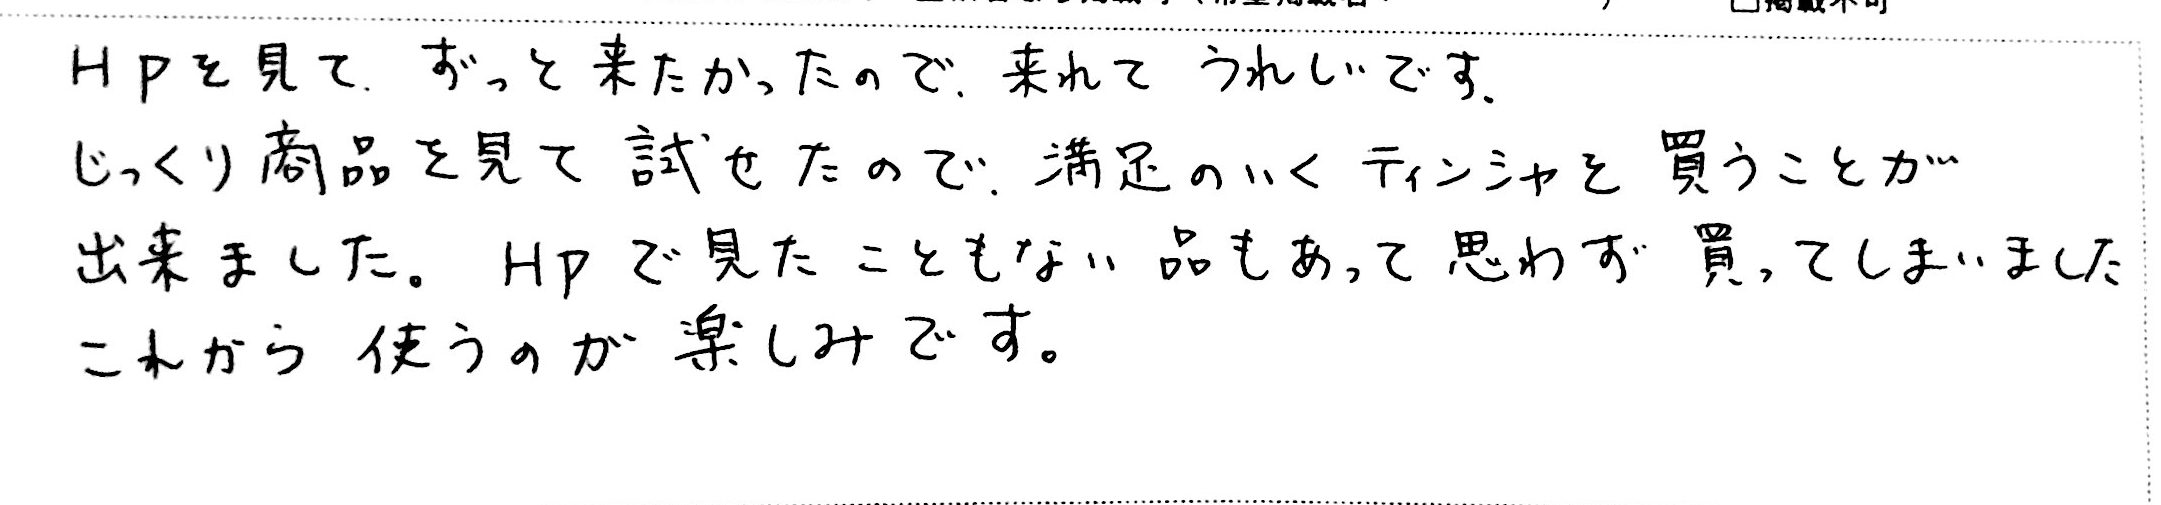 □掲載不可
HPを見て、ずっと来たかったので、来れて うれしいです。
じっくり商品を見て試せたので、満足のいくティンシャを買うことが
出来ました。HPで見たこともない品もあって思わず買ってしまいました
これから使うのが楽しみです。